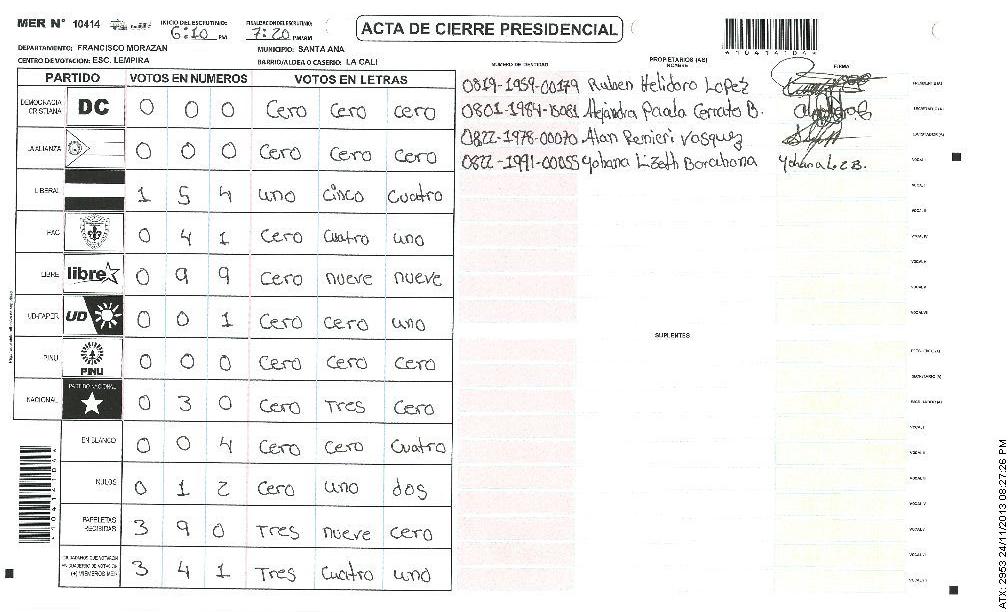 MER N° 10414
INICIO DEL ESCRUTINIO: 6:10 PM
FINALIZACION DEL ESCRUTINIO: 7:20 PM/AM
ACTA DE CIERRE PRESIDENCIAL
DEPARTAMENTO: FRANCISCO MORAZAN
MUNICIPIO: SANTA ANA
CENTRO DE VOTACION: ESC. LEMPIRA
BARRIO/ALDEA O CASERIO: LA CALI
PARTIDO VOTOS EN NUMEROS VOTOS EN LETRAS
DEMOCRACIA CRISTIANA DC 0 0 0 Cero Cero Cero
LA ALIANZA 0 0 0 Cero Cero Cero
LIBERAL 1 5 4 uno cinco cuatro
PAC 0 4 1 Cero cuatro uno
LIBRE libre 0 9 9 Cero nueve nueve
UD-FAPER UD 0 0 1 Cero Cero uno
PINU PINU 0 0 0 Cero Cero Cero
NACIONAL PARTIDO NACIONAL 0 3 0 Cero Tres Cero
EN BLANCO 0 0 4 Cero Cero Cuatro
NULOS 0 1 2 Cero uno dos
PAPELETAS RECIBIDAS 3 9 0 Tres nueve cero
CIUDADANOS QUE VOTARON EN CUADERNO DE VOTACION (+) MIEMBROS MER 3 4 1 Tres Cuatro uno
NUMERO DE IDENTIDAD
PROPIETARIOS (AS)
NOMBRE
FIRMA
0819-1959-00179 Ruben Helidoro Lopez
PRESIDENTE (A)
0801-1984-15081 Alejandra Paola Cerrato B.
SECRETARIO (A)
0822-1978-00070 Alan Renieri Vasquez
ESCRUTADOR (A)
0822-1991-00055 Yohana Lizeth Barahona Yohana L.Z B.
VOCAL I
SUPLENTES
PRESIDENTE (A)
SECRETARIO (A)
ESCRUTADOR (A)
*104141DA*
ATX: 2953 24/11/2013 08:27:26 PM